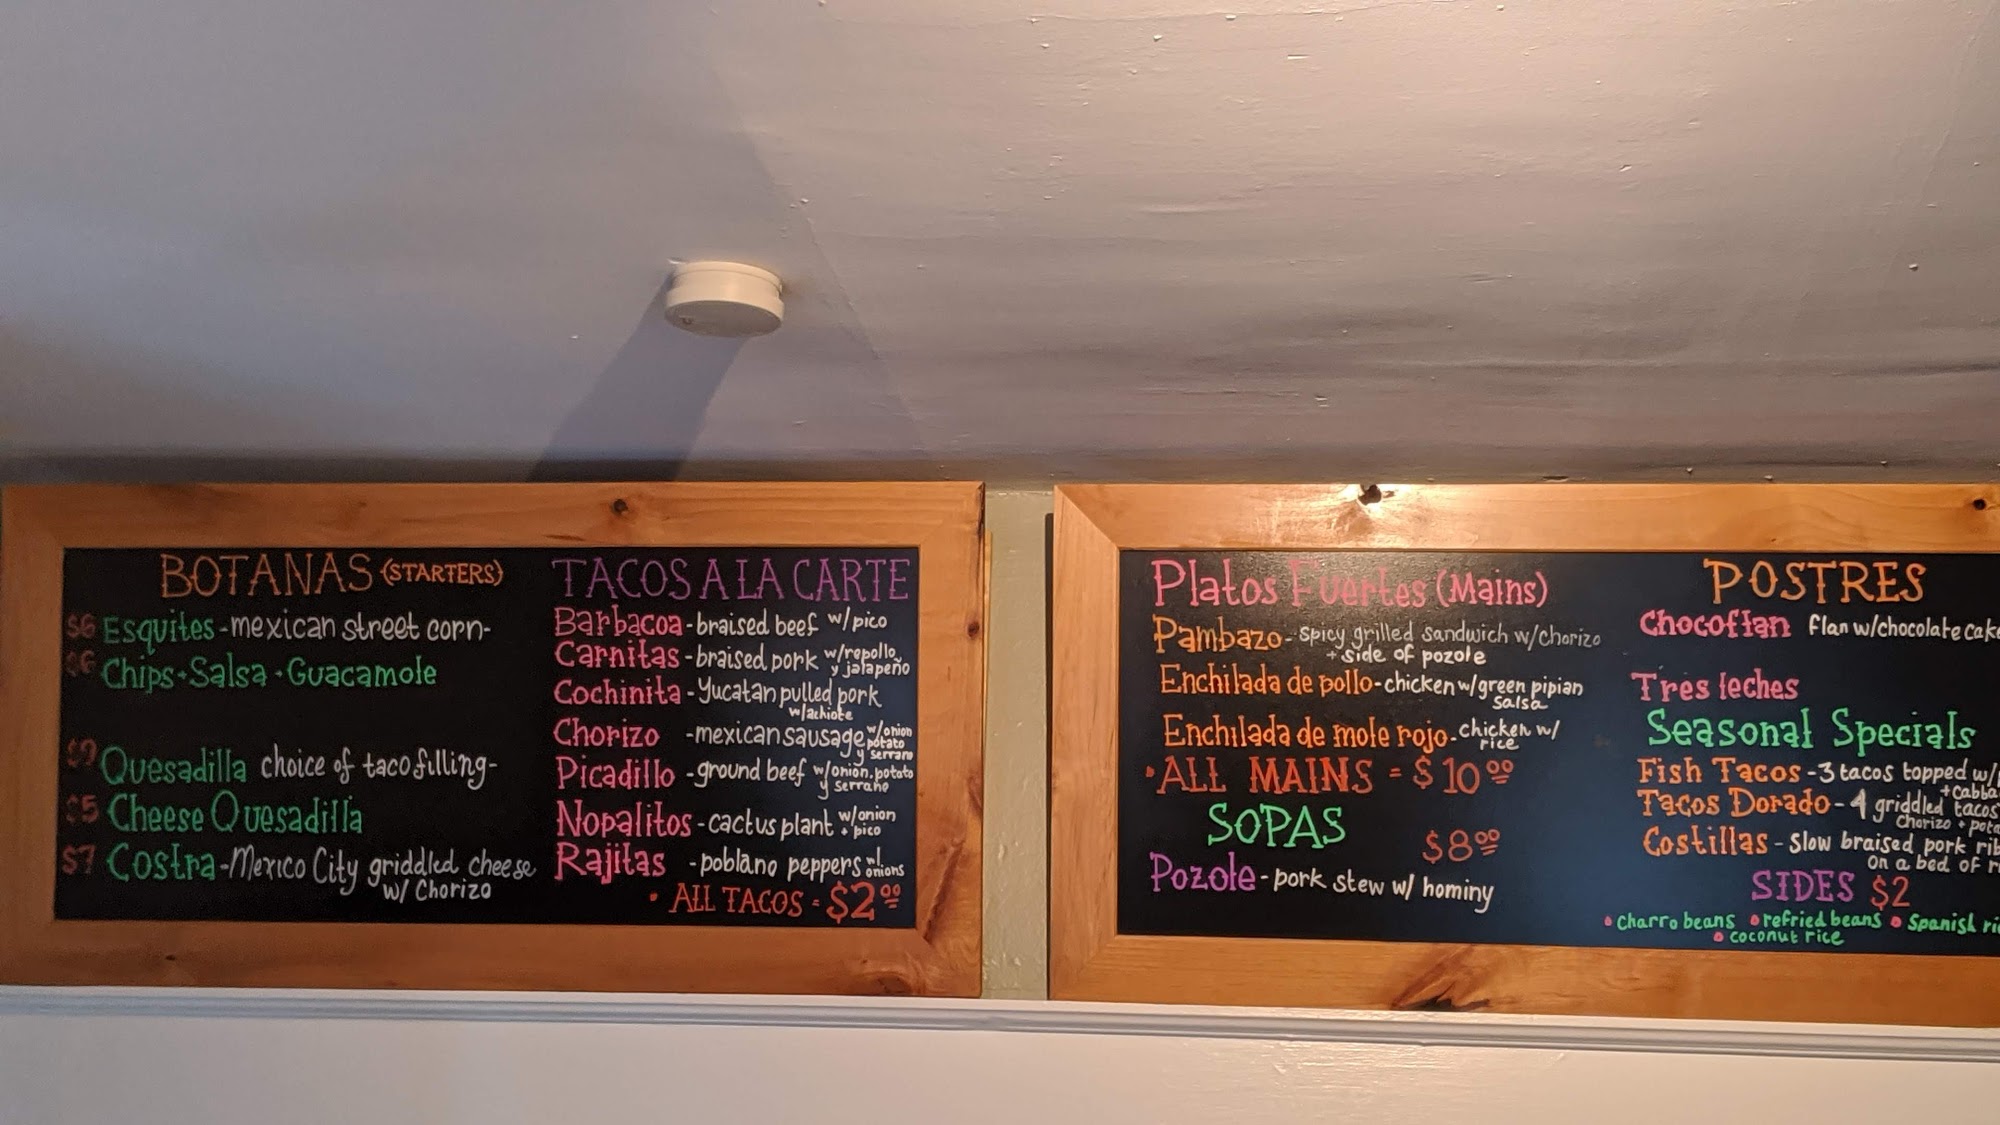 BOTANAS (STARTERS)
$6 Esquites - mexican street corn-
$6 Chips • Salsa • Guacamole
Quesadilla choice of taco filling-
$5 Cheese Quesadilla
$7 Costra - Mexico City griddled cheese
w/ Chorizo
TACOS A LA CARTE
Barbacoa - braised beef w/ pico
Carnitas - braised pork w/ repollo
y jalapeño
Cochinita - Yucatan pulled pork
w/ achiote
Chorizo - mexican sausage w/ onion
potato
y serrano
Picadillo - ground beef w/ onion, potato
y serrano
Nopalitos - cactus plant w/ onion
+ pico
Rajitas - poblano peppers w/
onions
• ALL TACOS = $2.00
Platos Fuertes (Mains)
Pambazo - spicy grilled sandwich w/ chorizo
+ side of pozole
Enchilada de pollo - chicken w/ green pipian
salsa
Enchilada de mole rojo - chicken w/
rice
• ALL MAINS = $10.00
SOPAS
$8.00
Pozole - pork stew w/ hominy
POSTRES
Chocoflan flan w/ chocolate cake
Tres leches
Seasonal Specials
Fish Tacos - 3 tacos topped w/
Tacos Dorado - 4 griddled tacos
Chorizo +
Costillas - slow braised pork
on a bed of
SIDES $2
• charro beans • refried beans • Spanish
• coconut rice